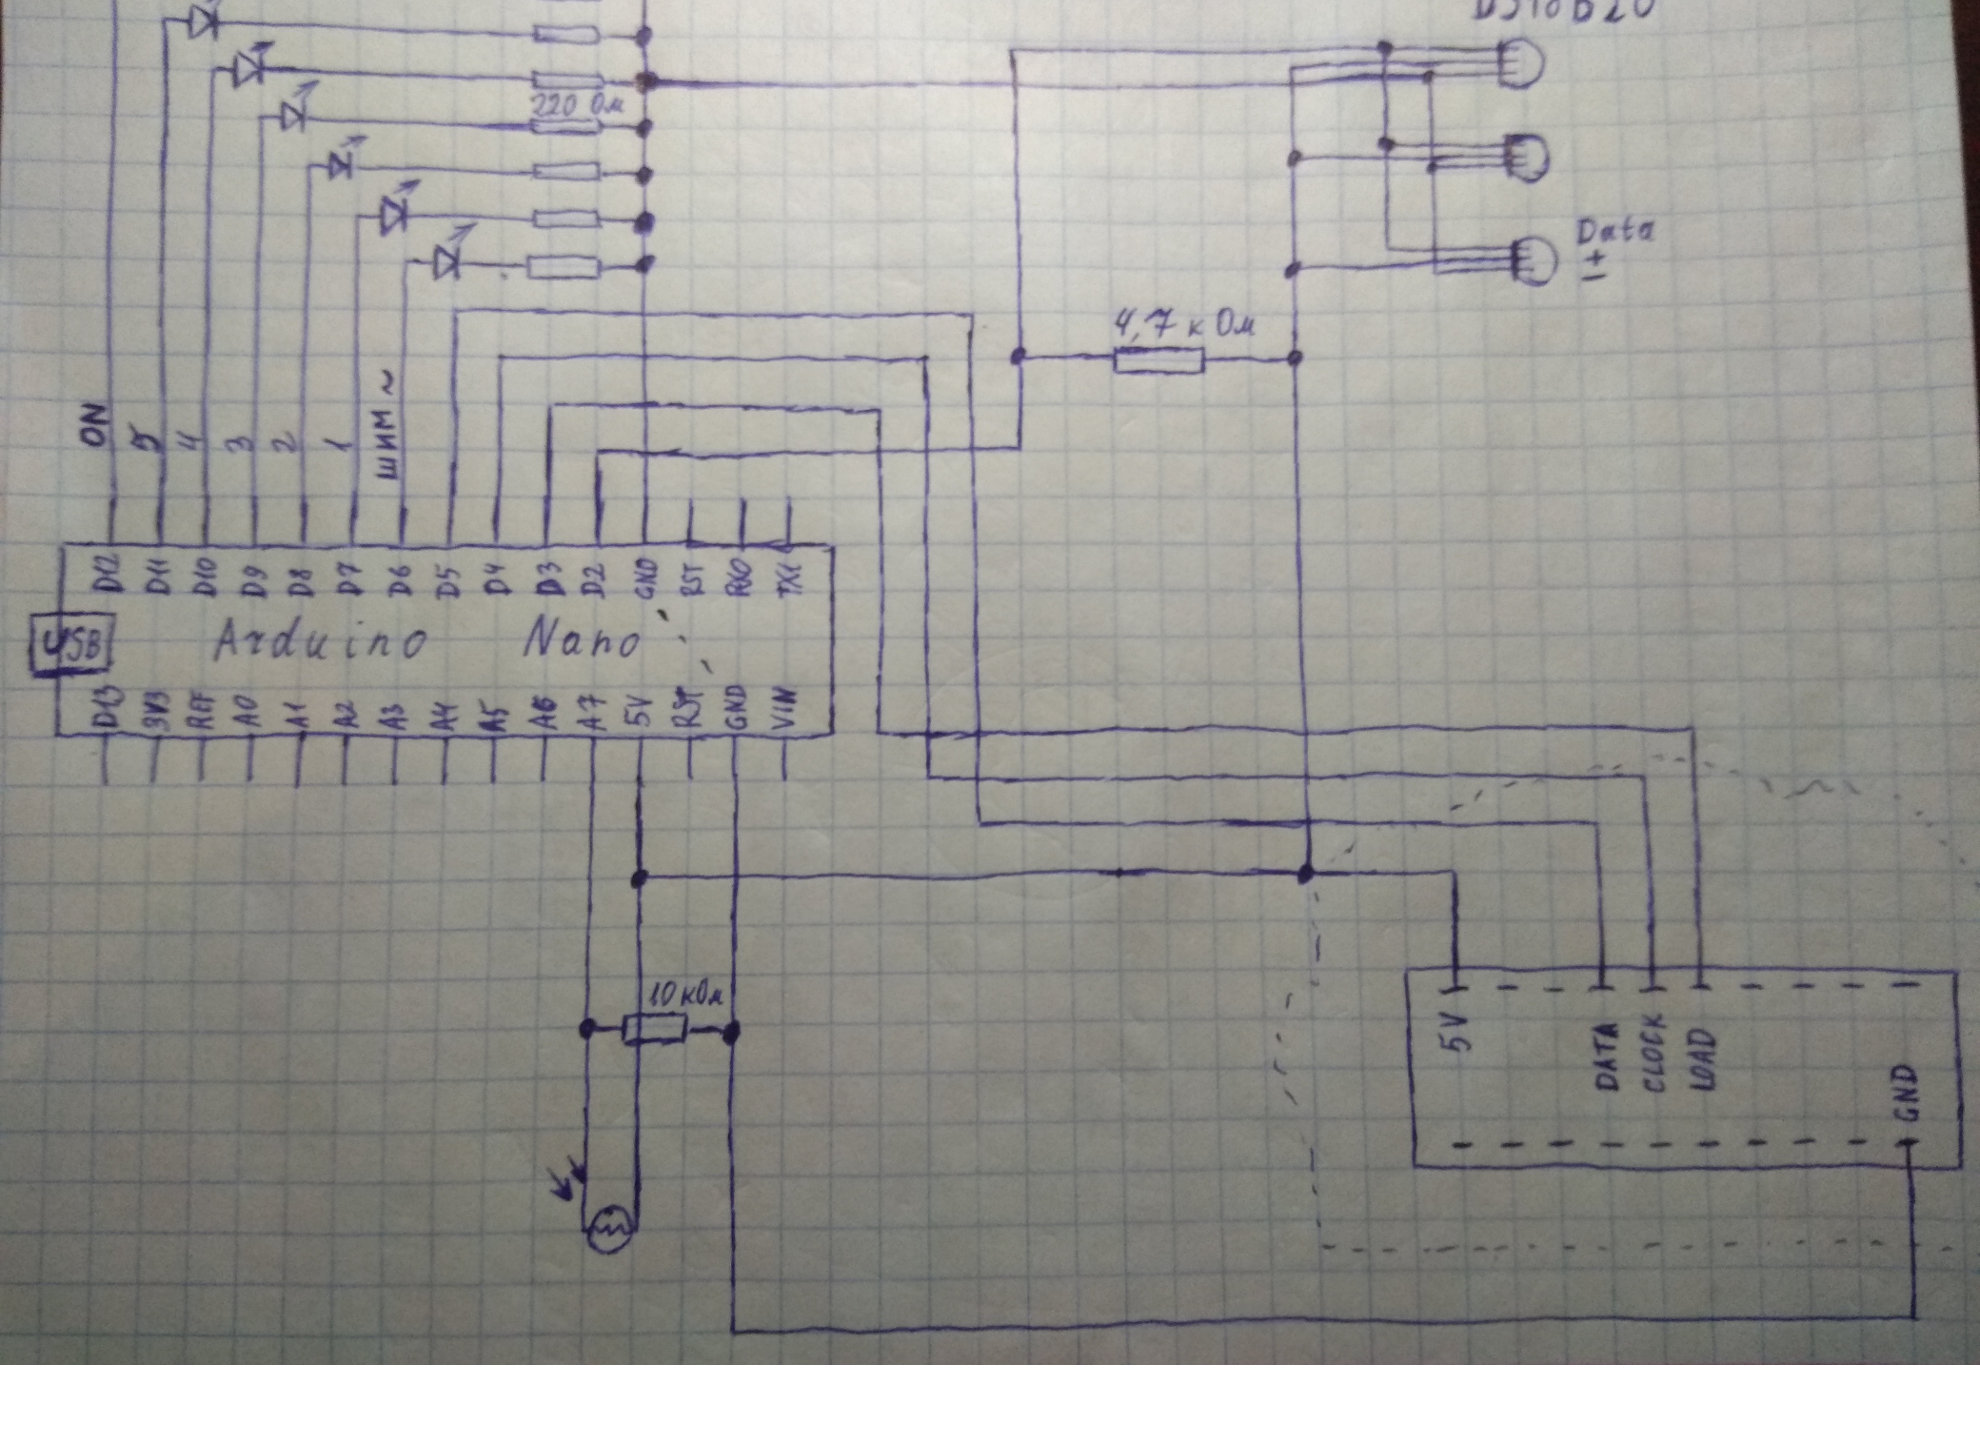 DS18B20
220 Ом
Data
+
-
4,7 к Ом
ON
5
4
3
2
1
ШИМ ~
D12 D11 D10 D9 D8 D7 D6 D5 D4 D3 D2 GND RST RX0 TX1
USB
Arduino Nano
D13 3V3 REF A0 A1 A2 A3 A4 A5 A6 A7 5V RST GND VIN
10 кОм
5V DATA CLOCK LOAD
GND